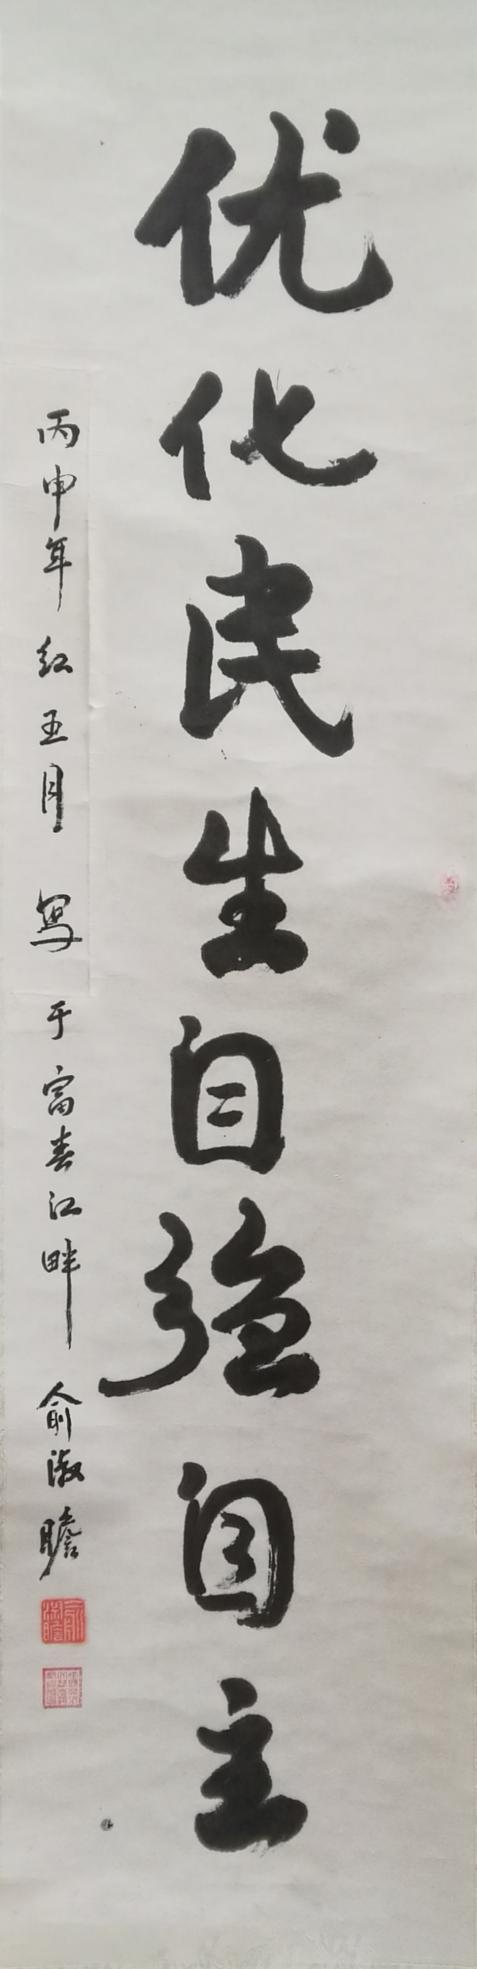 优化民生自强自主
丙申年红五月写于富春江畔俞淑瞻